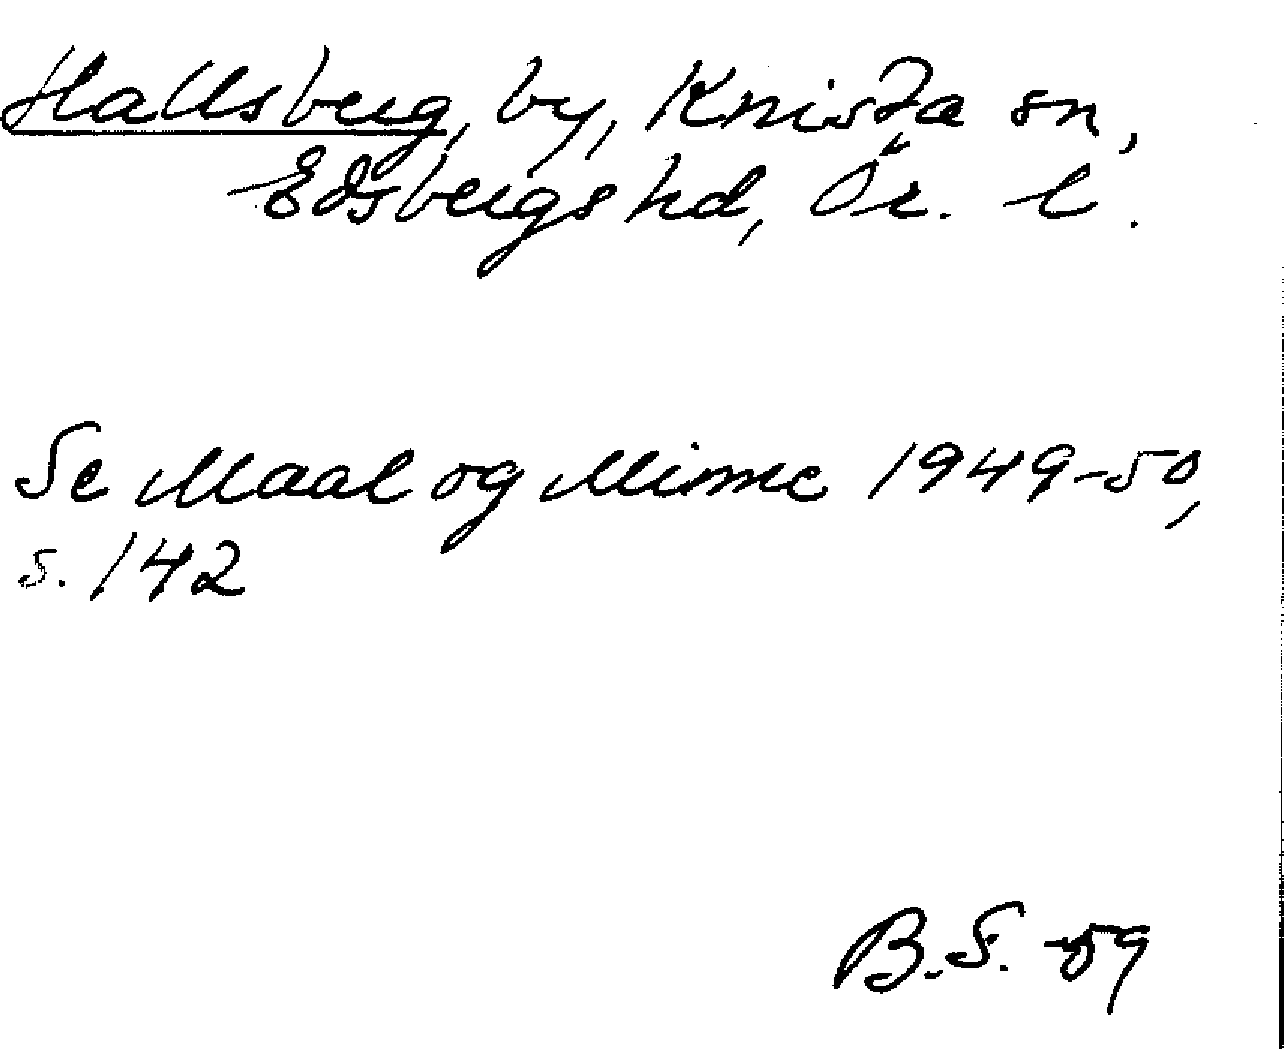 Hallsberg, by, Knista sn,
Edsbergs hd, Ör. l.
Se Maal og Minne 1949-50,
s. 142
B.S. -59